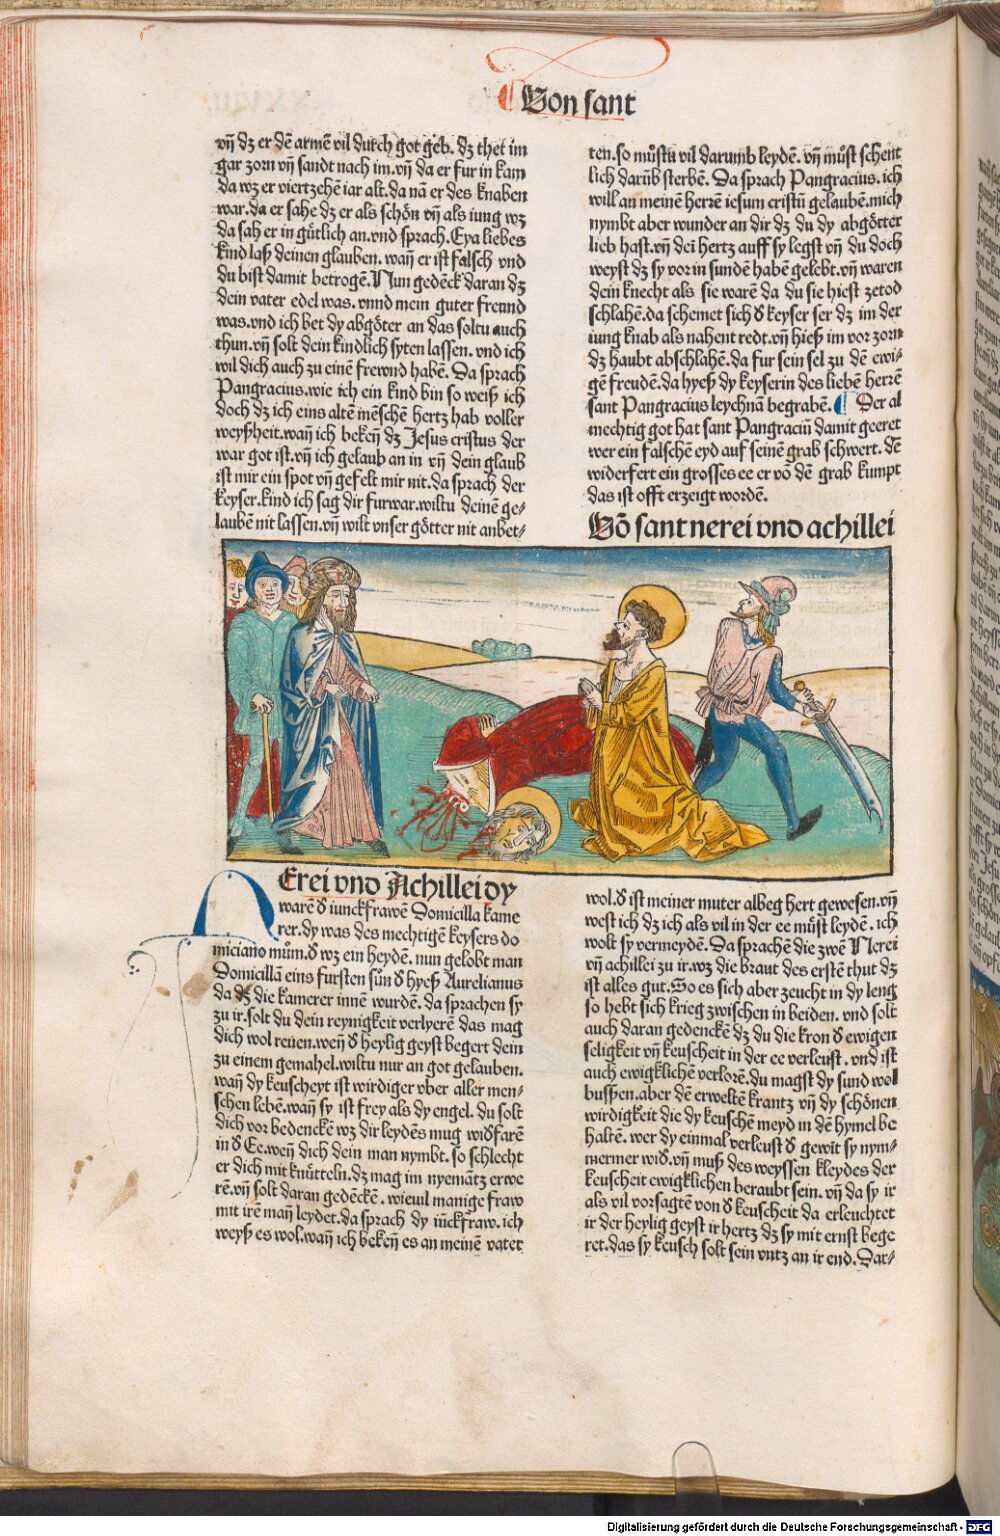 Von sant
vñ dz er dẽ armẽ vil durch got geb. dz thet im
gar zorn vñ sandt nach im. vñ da er fur in kam
da wz er viertzehẽ iar alt. da nã er des knaben
war. da er sahe dz er als schön vñ als iung wz
da sah er in gütlich an. vnd sprach. Eya liebes
kind laß deinen glauben. wañ er ist falsch vnd
du bist damit betrogẽ. Nun gedẽck daran dz
dein vater edel was. vnnd mein guter freund
was. vnd ich bet dy abgöter an das soltu auch
thun. vñ solt dein kindlich syten lassen. vnd ich
wil dich auch zu einẽ frewnd habẽ. Da sprach
Pangracius. wie ich ein kind bin so weiß ich
doch dz ich eins altẽ mẽschẽ hertz hab voller
weyßheit. wañ ich bekeñ dz Jesus cristus der
war got ist. vñ ich gelaub an in vñ dein glaub
ist mir ein spot vñ gefelt mir nit. da sprach der
keyser. kind ich sag dir furwar. wiltu deinẽ ge-
laubẽ nit lassen. vñ wilt vnser götter nit anbet-
ten. so můstu vil darumb leydẽ. vñ můst schent
lich darũb sterbẽ. Da sprach Pangracius. ich
will an meinẽ herrẽ iesum cristũ gelaubẽ. mich
nymbt aber wunder an dir dz du dy abgötter
lieb hast. vñ dei hertz auff sy legst vñ du doch
weyst dz sy vor in sundẽ habẽ gelebt. vñ waren
dein knecht als sie warẽ da du sie hiest zetod
schlahẽ. da schemet sich d keyser ser dz im der
iung knab als nahent redt. vñ hieß im vor zorn
dz haubt abschlahẽ. da fur sein sel zu dẽ ewi-
gẽ freudẽ. da hyeß dy keyserin des liebẽ herrẽ
sant Pangracius leychnã begrabẽ. Der al
mechtig got hat sant Pangraciũ damit geeret
wer ein falschẽ eyd auf seinẽ grab schwert. dẽ
widerfert ein grosses ee er võ dẽ grab kumpt
das ist offt erzeigt wordẽ.
Võ sant nerei vnd achillei
NErei vnd Achillei dy
warẽ d iunckfrawẽ Domicilla kame
rer. dy was des mechtigẽ keysers do
miciano mům. d wz ein heydẽ. nun gelobt man
Domicillã eins fursten sůn d hyeß Aurelianus
da dz die kamerer innẽ wurdẽ. da sprachen sy
zu ir. solt du dein reynigkeit verlyerẽ das mag
dich wol reuen. weñ d heylig geyst begert dein
zu einem gemahel. wiltu nur an got gelauben.
wañ dy keuscheyt ist wirdiger vber aller men-
schen lebẽ. wañ sy ist frey als dy engel. du solt
dich vor bedenckẽ wz dir leydẽs mug widfarẽ
in d Ee. weñ dich dein man nymbt. so schlecht
er dich mit knütteln. dz mag im nyemãtz erwe
rẽ. vñ solt daran gedẽckẽ. wieuil manige fraw
mit irẽ mañ leydet. da sprach dy iũckfraw. ich
weyß es wol. wañ ich bekeñ es an meinẽ vater
wol. d ist meiner muter albeg hert gewesen. vñ
west ich dz ich als vil in der ee můst leydẽ. ich
wolt sy vermeydẽ. Da sprachẽ die zwẽ Nerei
vñ achillei zu ir. wz die braut des erstẽ thut dz
ist alles gut. So es sich aber zeucht in dy leng
so hebt sich krieg zwischen in beiden. vnd solt
auch daran gedenckẽ dz du die kron d ewigen
seligkeit vñ keuscheit in der ee verleust. vnd ist
auch ewigklichẽ verlorẽ. du magst dy sund wol
bussen. aber dẽ erweltẽ krantz vñ dy schönen
wirdigkeit die dy keuschẽ meyd in dẽ hymel be
haltẽ. wer dy einmal verleust d gewit sy nym-
mermer wid. vñ muß des weyssen kleydes der
keuscheit ewigklichen beraubt sein. vñ da sy ir
als vil vorsagtẽ von d keuscheit da erleuchtet
ir der heylig geyst ir hertz dz sy mit ernst bege
ret. das sy keusch solt sein vntz an ir end. Dar-
Digitalisierung gefördert durch die Deutsche Forschungsgemeinschaft - DFG